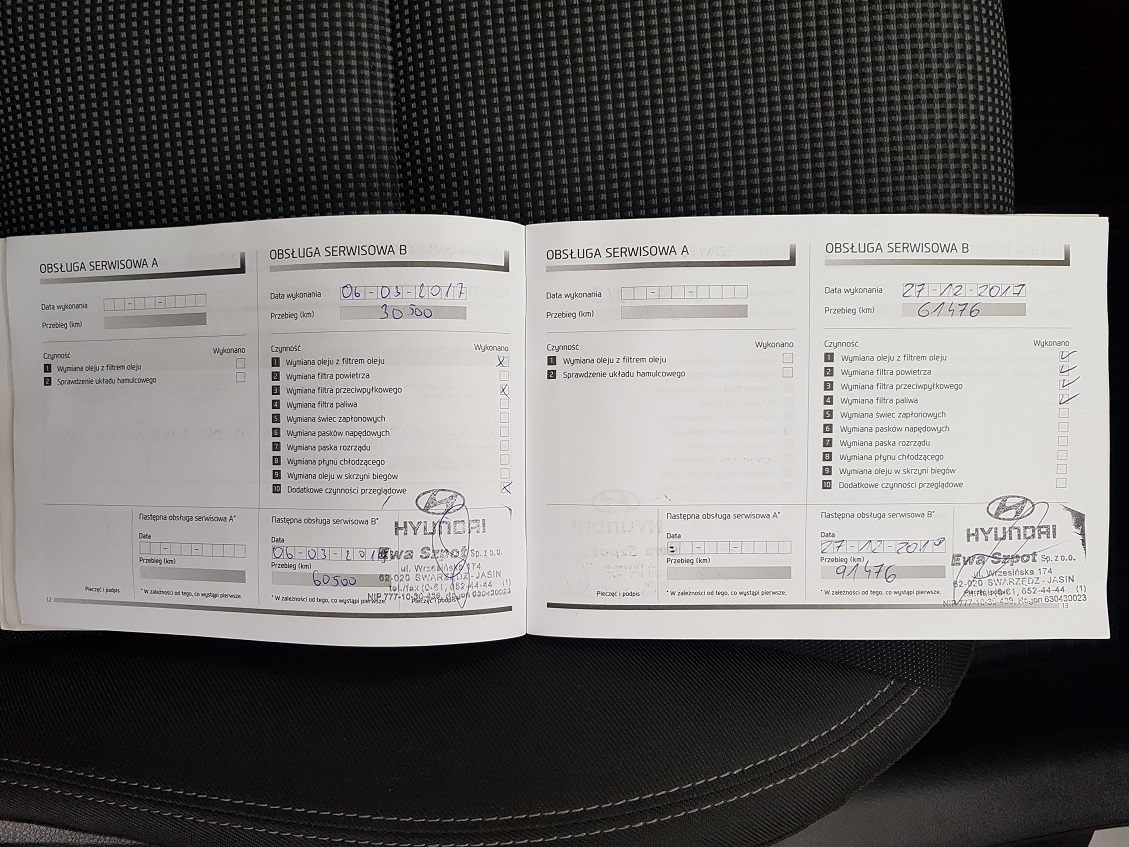 OBSŁUGA SERWISOWA A
Data wykonania
Przebieg (km)
Czynność Wykonano
1 Wymiana oleju z filtrem oleju
2 Sprawdzenie układu hamulcowego
Następna obsługa serwisowa A*
Data
Przebieg (km)
Pieczęć i podpis
* W zależności od tego, co wystąpi pierwsze.
12
OBSŁUGA SERWISOWA B
Data wykonania 06-03-2017
Przebieg (km) 30 500
Czynność Wykonano
1 Wymiana oleju z filtrem oleju X
2 Wymiana filtra powietrza
3 Wymiana filtra przeciwpyłkowego X
4 Wymiana filtra paliwa
5 Wymiana świec zapłonowych
6 Wymiana pasków napędowych
7 Wymiana paska rozrządu
8 Wymiana płynu chłodzącego
9 Wymiana oleju w skrzyni biegów
10 Dodatkowe czynności przeglądowe X
Następna obsługa serwisowa B*
Data
06-03-201
Przebieg (km)
60500
* W zależności od tego, co wystąpi pierwsze.
Pieczęć i podpis
HYUNDAI
Ewa Szpot Sp. z o.o.
ul. Wrzesińska 174
62-020 SWARZĘDZ-JASIN
tel./fax (0-61) 652-44-44 (1)
NIP 777-10-30-429, Regon 630430023
OBSŁUGA SERWISOWA A
Data wykonania
Przebieg (km)
Czynność Wykonano
1 Wymiana oleju z filtrem oleju
2 Sprawdzenie układu hamulcowego
Następna obsługa serwisowa A*
Data
Przebieg (km)
Pieczęć i podpis
* W zależności od tego, co wystąpi pierwsze.
OBSŁUGA SERWISOWA B
Data wykonania 27-12-2017
Przebieg (km) 61476
Czynność Wykonano
1 Wymiana oleju z filtrem oleju
2 Wymiana filtra powietrza
3 Wymiana filtra przeciwpyłkowego
4 Wymiana filtra paliwa
5 Wymiana świec zapłonowych
6 Wymiana pasków napędowych
7 Wymiana paska rozrządu
8 Wymiana płynu chłodzącego
9 Wymiana oleju w skrzyni biegów
10 Dodatkowe czynności przeglądowe
Następna obsługa serwisowa B*
Data
27-12-2018
Przebieg (km)
91476
* W zależności od tego, co wystąpi pierwsze.
HYUNDAI
Ewa Szpot Sp. z o.o.
ul. Wrzesińska 174
62-020 SWARZĘDZ-JASIN
652-44-44 (1)
NIP 777-10-30-429, Regon 630430023
13